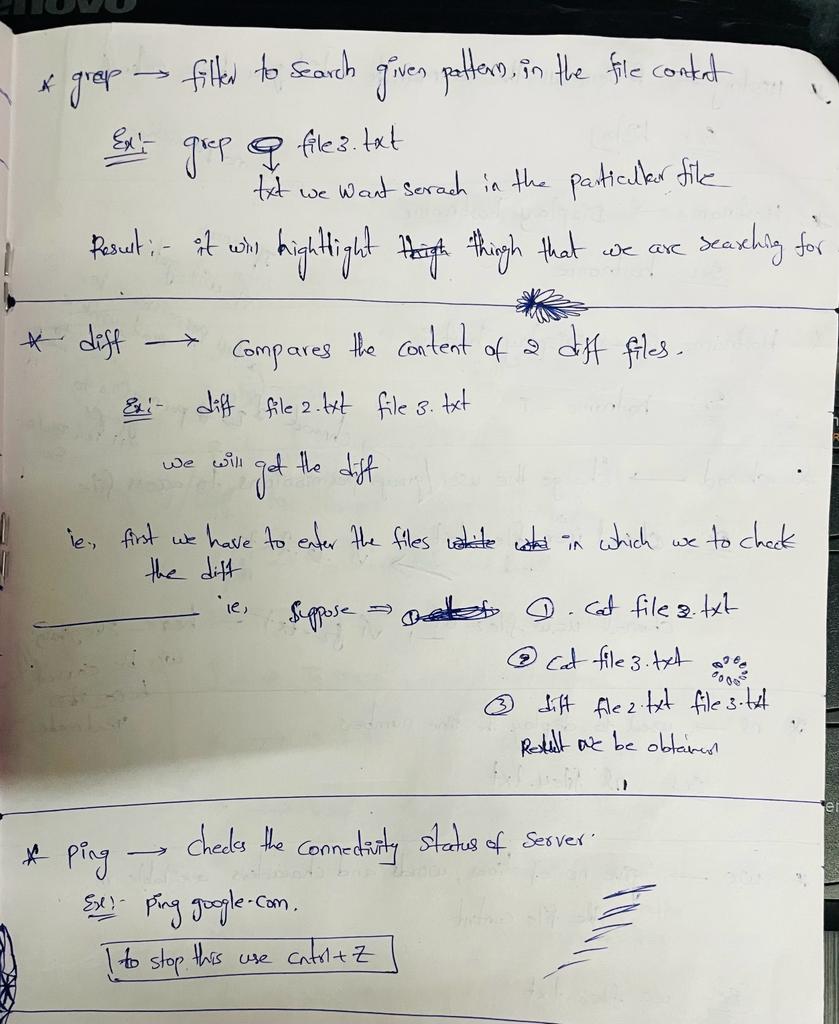 enovo
* grep → filter to search given pattern, in the file content
Ex:- grep file3.txt
txt we want serach in the particular file
Result:- it will hightlight thingh that we are searching for
* diff → compares the content of 2 diff files.
Ex:- diff file 2.txt file 3.txt
we will get the diff
ie., first we have to enter the files in which we to check
the diff
ie, Suppose ⇒ ① . Cat file 2.txt
② Cat file 3.txt
③ diff file 2.txt file 3.txt
Result be obtained
* ping → checks the connectivity status of server.
Ex:- ping google.com.
to stop this use cntrl+Z